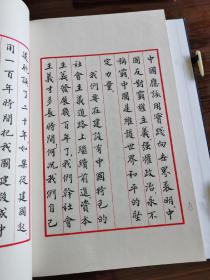 中國應該用實踐向世界表明中
國反對霸權主義强權政治永不
稱霸中國是維護世界和平的堅
定力量
我們要在建設有中國特色的
社會主義道路上繼續前進資本
主義發展幾百年了我們幹社會
主義才多長時間何况我們自己
還耽誤了二十年如果從建國起
用一百年時間把我國建設成中